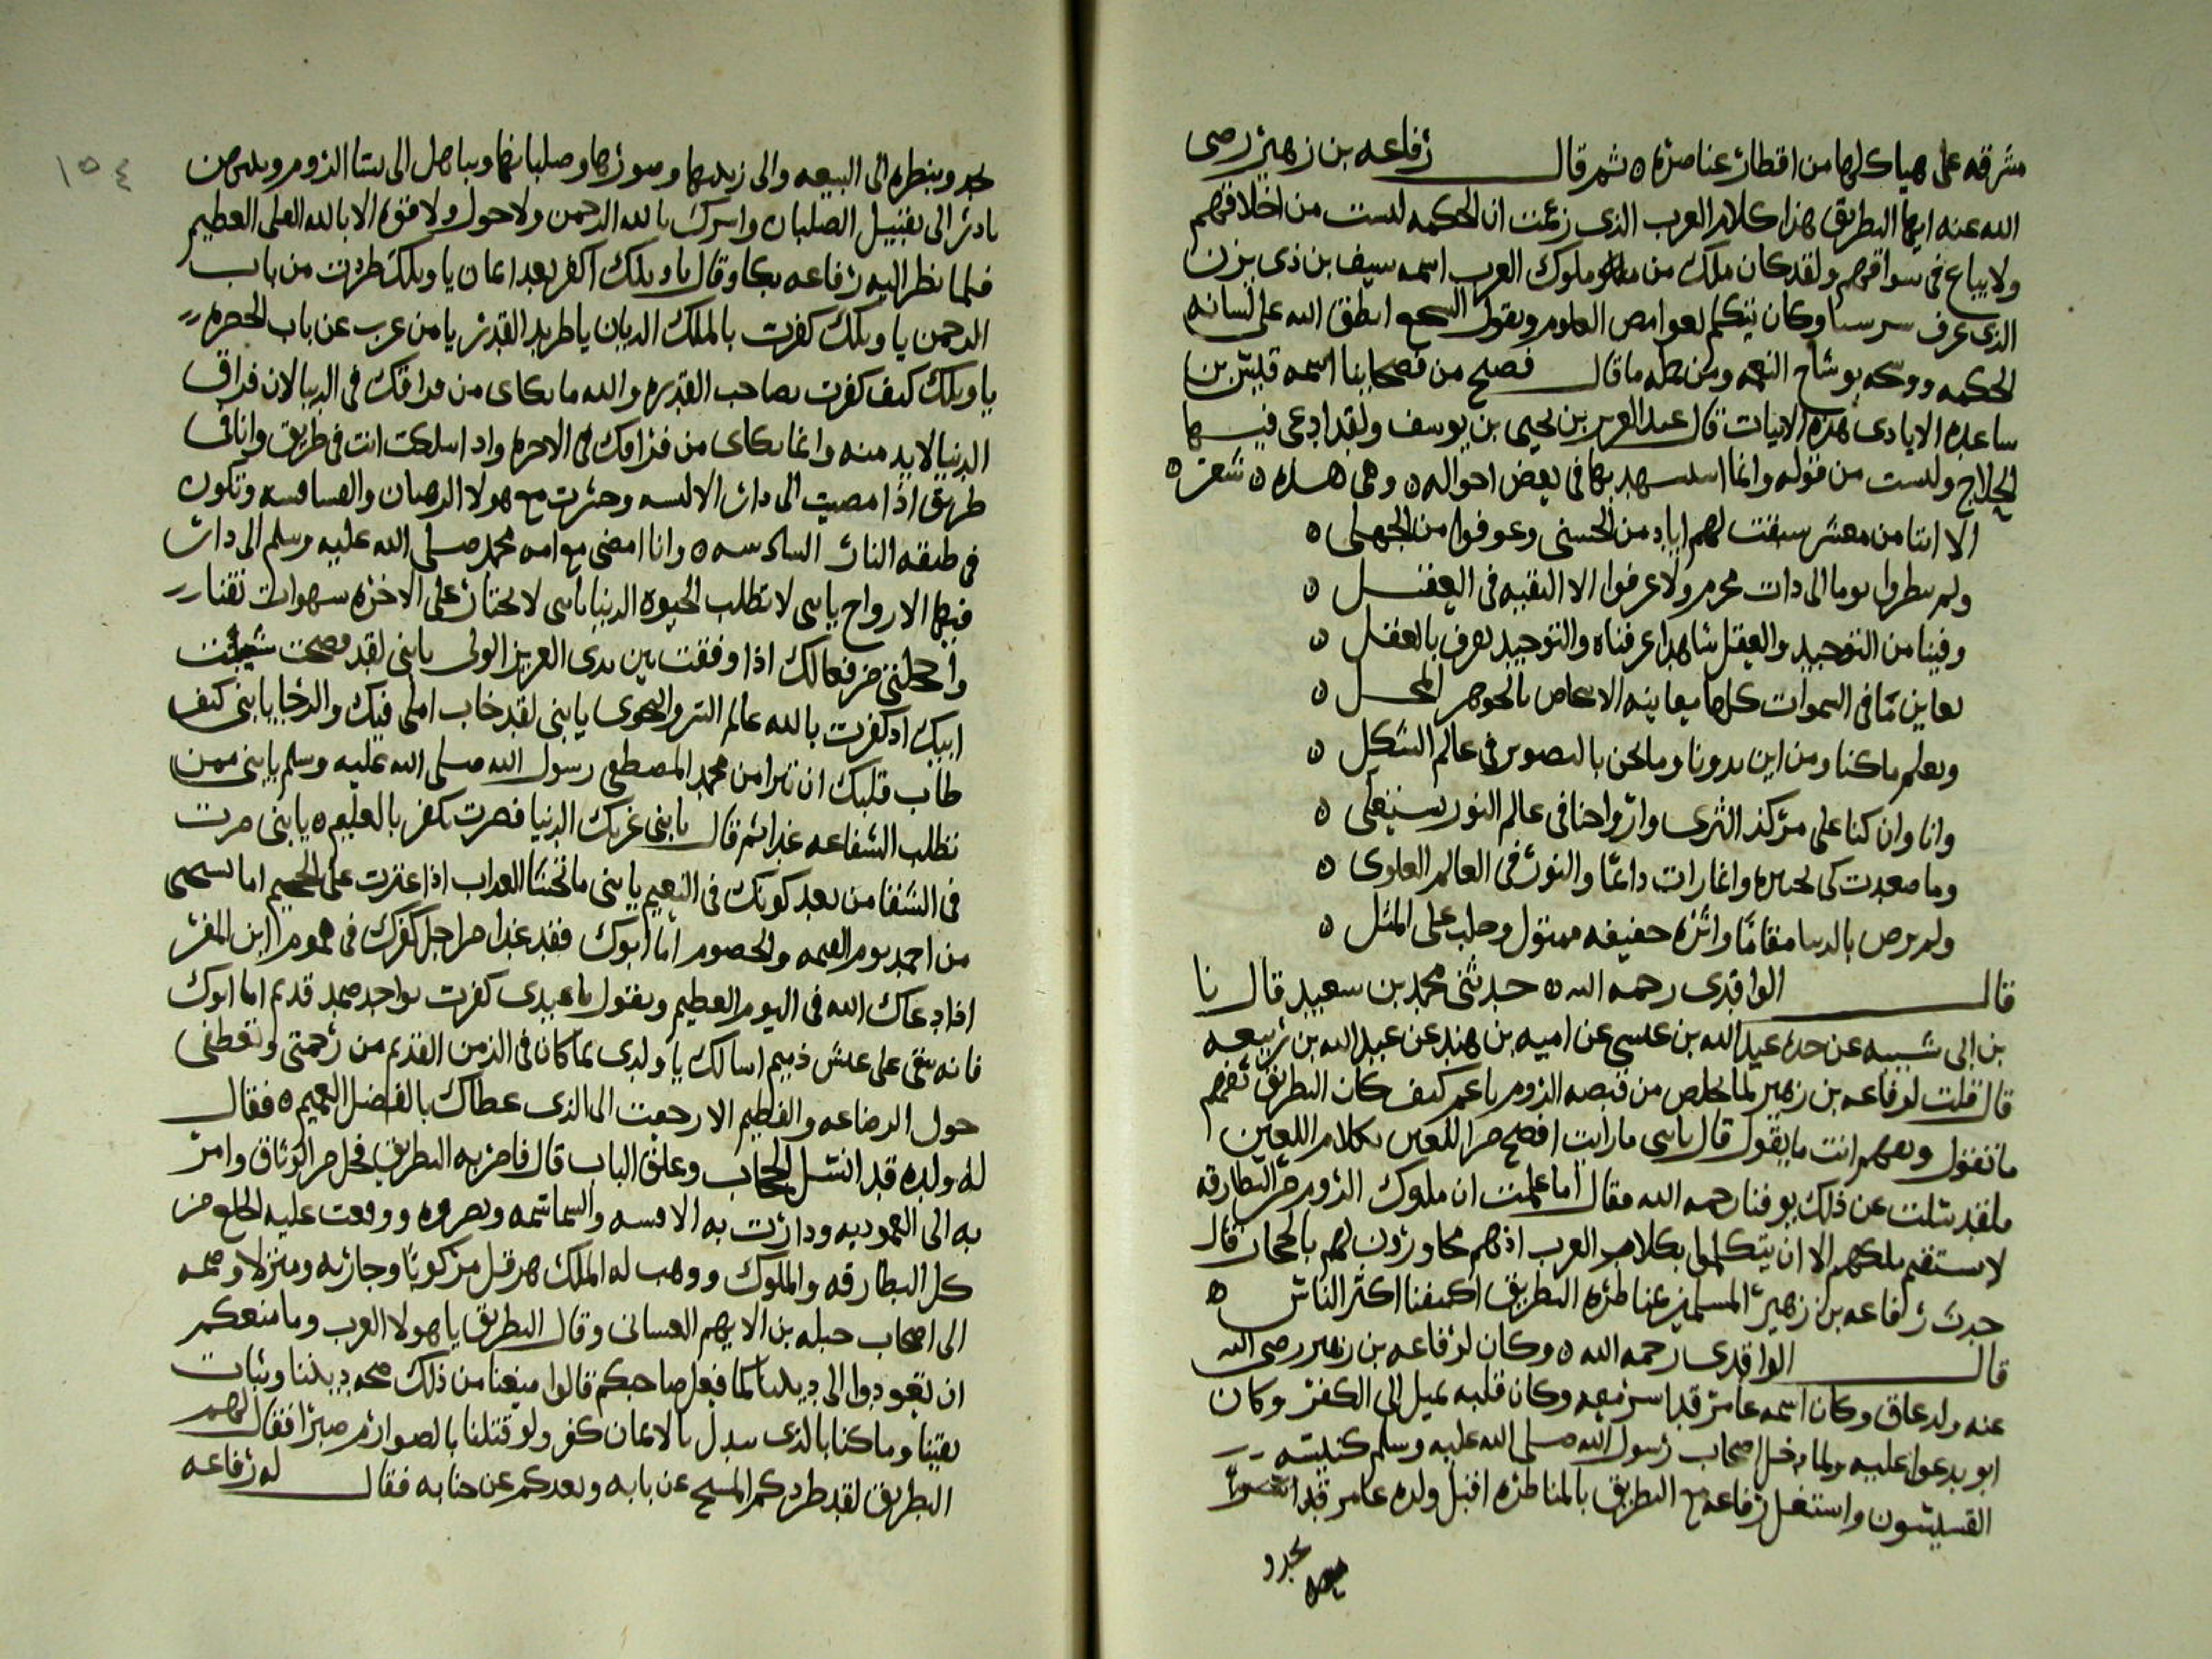 مشرقه على هياكلها من اقطار عناصره ٥ ثم قال رفاعه بن زهير رضى
الله عنه ايها البطريق هذا كلام العرب الذى زعمت ان الحكمه لست من اخلاقهم
ولا يباع فى سواقهم ولقد كان ملك من ملوك العرب اسمه سيف بن ذى يزن
الذى عرف وكان يتكلم بعوامص العلوم ويقول السجع انطق الله على لسانه
الحكمه ووسحه بوشاح النعمه ومن جمله ما قال فصيح من فصحاينا اسمه قيس بن
ساعده الايادى هذه الابيات قال عبد العزيز بن يحيى بن يوسف ولقد ادعى فيها
الحلاج ولست من قوله وانما استسهد بها فى بعض احواله ٥ وهى هذه ٥ شعر ٥
الا اننا من معشر سبقت لهم اياد من الحسنى وعوفوا من الجهل ٥
ولم ينظروا يوما الى ذات محرم ولا عرفوا الا التقيه فى الفعل ٥
وفينا من التوحيد والعقل شاهد عرفناه والتوحيد يعرف بالعقل ٥
يعاين ما فى السموات كلها معاينه الاسحاص بالجوهر المحل ٥
ويعلم ما كنا ومن اين بدونا وما نحن بالتصوير فى عالم الشكل ٥
وانا وان كنا على مركز الثرى وارواحنا فى عالم النور تستعلى ٥
وما صعدت كى واغارات داعًا والنور فى العالم العلوى ٥
ولم برض بالدنيا مقامًا وانزه حقيقه ممثول وحلب على المثل ٥
قال الواقدى رحمه الله ٥ حدثنى محمد بن سعيد قال نا
بن ابى شيبه عن جده عبد الله بن عيسى عن اميه بن هند عن عبد الله بن ربيعه
قال قلت لرفاعه بن زهير لما تخلص من قبضه الروم يا عم كيف كان البطريق يفهم
ما تقول وتفهم انت ما يقول قال يابنى ما رايت افصح من اللعين بكلام اللعين
ولقد سئلت عن ذلك يوقنا رحمه الله فقال اما علمت ان ملوك الروم من البطارقه
لا يستقم ملكهم الا ان يتكلموا بكلام العرب اذ هم محاورون لهم بالحجاز قال
حدث رفاعه بن زهير المسلمين مناظره البطريق اكتفنا اكثر الناس ٥
قال الواقدى رحمه الله ٥ وكان لرفاعه بن زهير رضى الله
عنه ولد عاق وكان اسمه عامر قد اسر معه وكان قلبه يميل الى الكفر وكان
ابو يدعوا عليه ولما دخل اصحاب رسول الله صلى الله عليه وسلم كنيسة
القسيسون واستغل رفاعه مع البطريق بالمناظره اقبل ولده عامر قد
يجد و
يجد وينظره الى البيعه والى زيدها وصورها وصلبانها ويباهل الى نسا الروم
بادر الى تقبيل الصلبان واسرك بالله الرحمن ولا حول ولا قوه الا بالله العلى العظيم
فلما نظر اليه رفاعه بكا وقال يا ويلك اكفر بعد ايمان يا ويلك طردت من باب
الرحمن يا ويلك كفرت بالملك الديان يا طريد القدر يا من عرب عن باب الحضره
يا ويلك كيف كفرت بصاحب القدره والله ما بكاى من فراقك فى الدنيا لان فراق
الدنيا لا بد منه وانما بكاى من فراقك فى الاخره واذا سلكت انت فى طريق وانا فى
طريق اذا مضيت الى دار الابلسه وحشرت مع هولا الرهبان والقساقسه وتكون
فى طبقه النار السادسه ٥ وانا امضى مع امه محمد صلى الله عليه وسلم الى دار
فيها الارواح يابنى لا تطلب الحيوه الدنيا يابنى لا تختار على الاخره سهوات تفنا
واخجلتى من فعالك اذا وقفت بين يدى العزيز الولى يابنى لقد فضحت شيبة
ابيك اذ كفرت بالله عالم السر والنجوى يابنى لقد خاب املى فيك والرجا يابنى كيف
طاب قلبك ان تبرا من محمد المصطفى رسول الله صلى الله عليه وسلم يابنى ممن
تطلب الشفاعه غدا ثم قال يابنى غرتك الدنيا فصرت تكفر بالعليم ٥ يابنى صرت
فى الشقا من بعد كونك فى النعيم يابنى ما تخشا العداب اذا عبرت على الجحيم اما تستحى
من احمد يوم القيمه والخصوم اما ابوك فقد غدا من اجل كفرك فى هموم اين المفر
اذا دعاك الله فى اليوم العظيم ويقول يا عبدى كفرت بواحد صمد قديم اما ابوك
فانه يبقى على عيش ذميم اسالك يا ولدى بما كان فى الزمن القديم من رحمتى وتعطفى
حول الرضاعه والفطيم الا رجعت الى الذى عطاك بالفضل العميم ٥ فقال
له ولده قد انسبل الحجاب وغلق الباب قال فامر به البطريق فحل من الوثاق وامر
به الى العموديه ودارت به الاقسه والسماسمه وووقعت عليه الخلع من
كل البطارقه والملوك ووهب له الملك هرقل مركوبًا وجاريه ومنزلا وضمه
الى اصحاب جبله بن الايهم الغسانى وقال البطريق يا هولا العرب وما منعكم
ان تعودوا الى ديننا كما فعل صاحبكم قالوا منعنا من ذلك صحه ديننا وثبات
يقيننا وما كنا بالذى نبدل بالايمان كفر ولو قتلنا بالصوارم صبرا فقال لهم
البطريق لقد طردكم المسيح عن بابه وبعدكم عن جنابه فقال له رفاعه
١٥٤